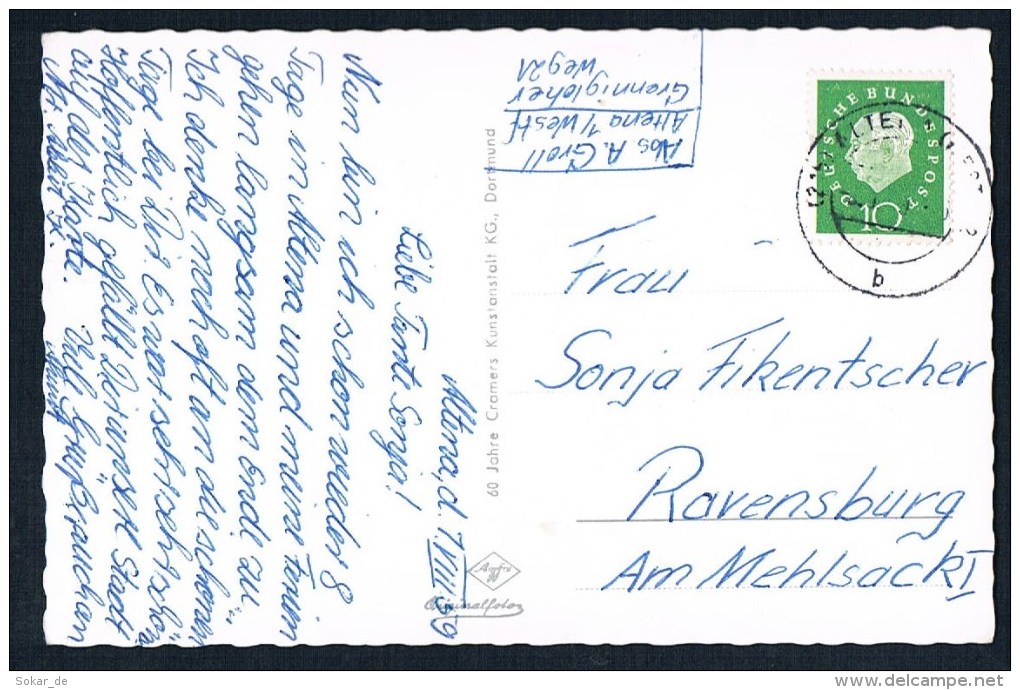 Altena, d. 7.VIII.59
Liebe Tante Sonja!
Nun bin ich schon wieder 8
Tage in Altena und meine Ferien
gehn langsam dem Ende zu.
Ich denke noch oft an die schönen
Tage bei Dir. Es war sehr sehr schön
Hoffentlich gefällt Dir unsere Stadt
auf der Karte. Viele Grüße
Abs A. Groll
Altena /Westf
Grennigloher
Weg 21
60 Jahre Cramers Kunstanstalt KG., Dortmund
Agfa
Originalfoto
DEUTSCHE BUNDESPOST
10
b
Frau
Sonja Fikentscher
Ravensburg
Am Mehlsack 1
Sokar_de
delcampe.net